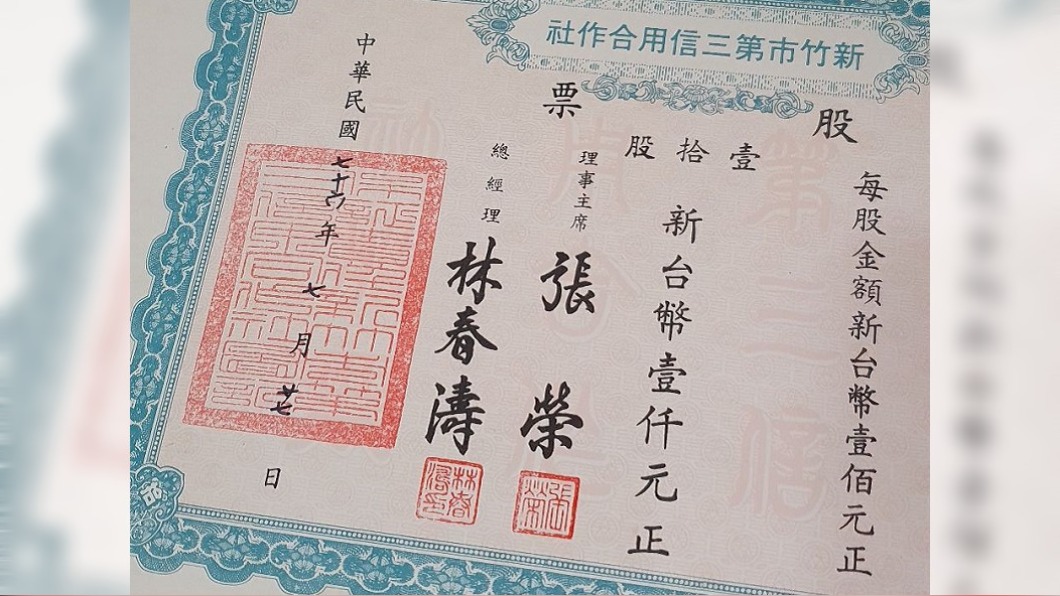 新竹市第三信用合作社
股票
每股金額新台幣壹佰元正
壹拾股
新台幣壹仟元正
理事主席 張榮
總經理 林春濤
中華民國七十六年七月廿七日